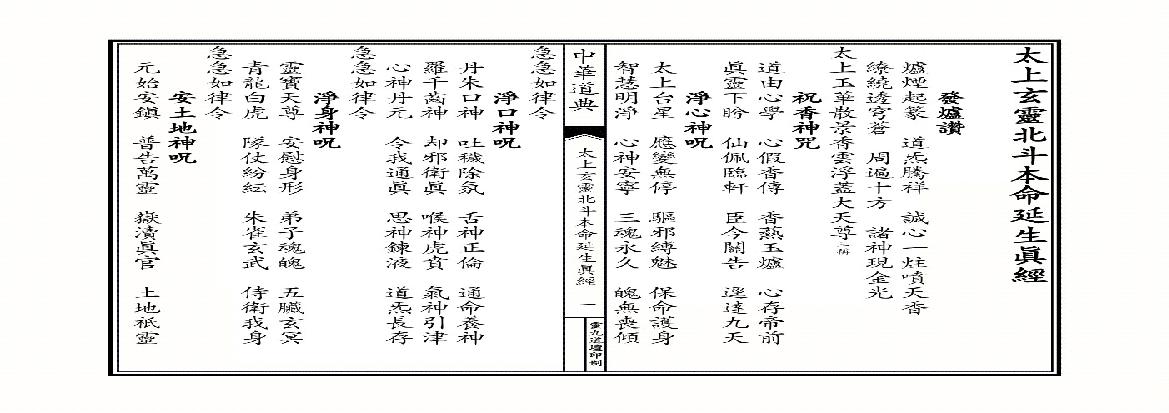 太上玄靈北斗本命延生眞經
發爐讚
爐煙起篆　道炁騰祥　誠心一炷噴天香
繚繞透穹蒼　周遍十方　諸神現金光
太上玉華散景香雲浮蓋大天尊
祝香神咒
道由心學　心假香傳　香爇玉爐　心存帝前
眞靈下盼　仙佩臨軒　臣今關告　逕達九天
淨心神呪
太上台星　應變無停　驅邪縛魅　保命護身
智慧明淨　心神安寧　三魂永久　魄無喪傾
中華道典
太上玄靈北斗本命延生眞經
一
急急如律令
淨口神呪
丹朱口神　吐穢除氛　舌神正倫　通命養神
羅千齒神　却邪衛眞　喉神虎賁　氣神引津
心神丹元　令我通眞　思神鍊液　道炁長存
急急如律令
淨身神呪
靈寶天尊　安慰身形　弟子魂魄　五臟玄冥
青龍白虎　隊仗紛紜　朱雀玄武　侍衛我身
急急如律令
安土地神呪
元始安鎮　普告萬靈　嶽瀆眞官　土地祇靈